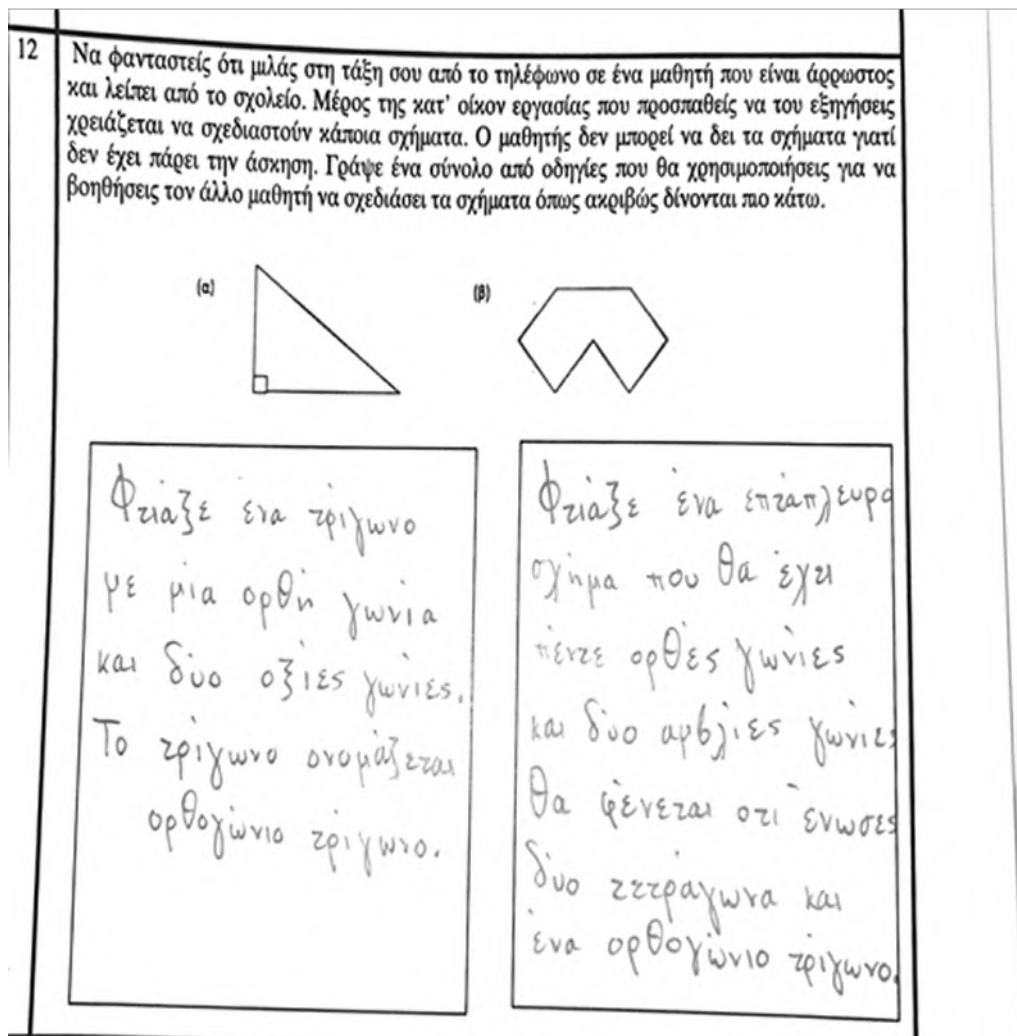 12
Να φανταστείς ότι μιλάς στη τάξη σου από το τηλέφωνο σε ένα μαθητή που είναι άρρωστος
και λείπει από το σχολείο. Μέρος της κατ' οίκον εργασίας που προσπαθείς να του εξηγήσεις
χρειάζεται να σχεδιαστούν κάποια σχήματα. Ο μαθητής δεν μπορεί να δει τα σχήματα γιατί
δεν έχει πάρει την άσκηση. Γράψε ένα σύνολο από οδηγίες που θα χρησιμοποιήσεις για να
βοηθήσεις τον άλλο μαθητή να σχεδιάσει τα σχήματα όπως ακριβώς δίνονται πιο κάτω.
(α)
(β)
Φτιάξε ένα τρίγωνο
με μία ορθή γωνία
και δύο οξίες γωνίες.
Το τρίγωνο ονομάζεται
ορθογώνιο τρίγωνο.
Φτιάξε ένα επτάπλευρο
σχήμα που θα έχει
πέντε ορθές γωνίες
και δύο αμβλίες γωνίες
θα φένεται οτι ένωσες
δύο τετράγωνα και
ένα ορθογώνιο τρίγωνο.